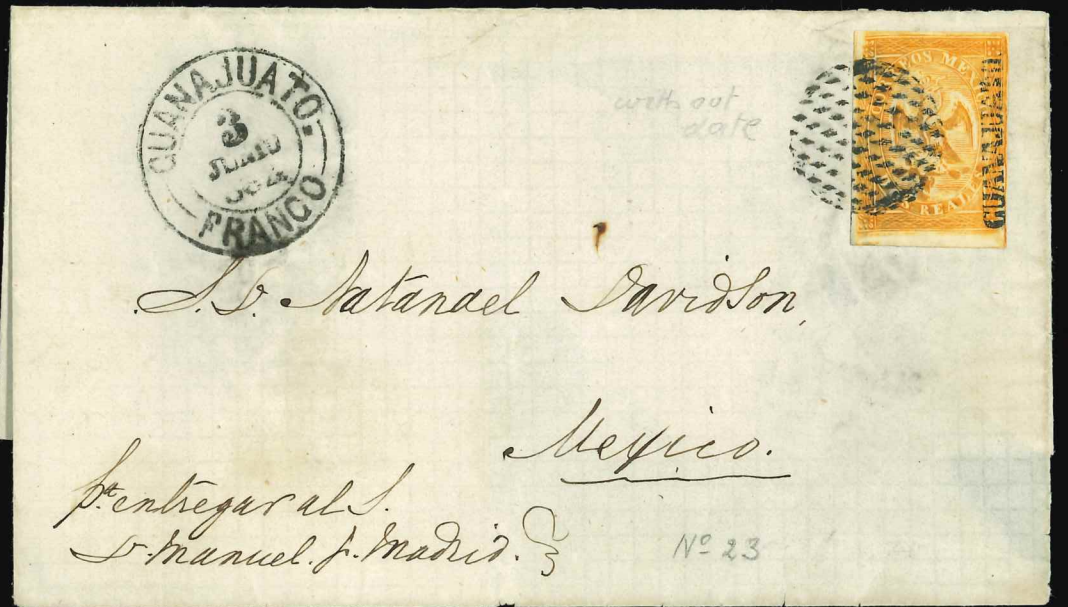 GUANAJUATO-
3
JUNIO
864
FRANCO
with out
date
CORREOS MEXICO
REALES
GUANAJUATO.
S. D. Natanael Davidson,
Mexico.
Pa. entregar al S.
D. Manuel F. Madrid.
No 23